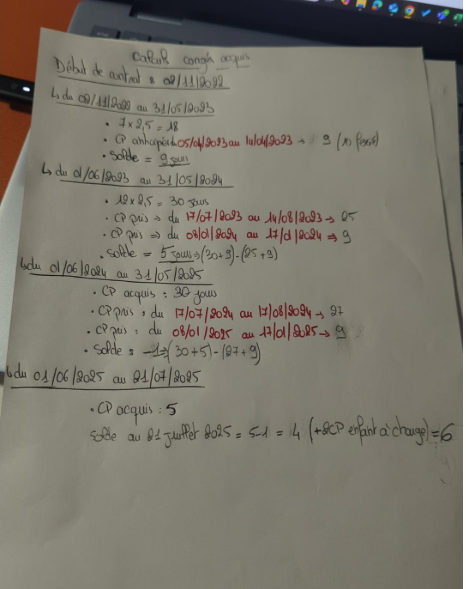 Calculs congés acquis
Début de contrat : 02/11/2022
↳ du 02/11/2022 au 31/05/2023
• 7 x 2,5 = 18
• CP anticipés 05/04/2023 au 14/04/2023 → 9
• Solde = 9 jours
↳ du 01/06/2023 au 31/05/2024
• 12 x 2,5 = 30 jours
• CP pris → du 17/07/2023 au 14/08/2023 → 25
• CP pris → du 08/01/2024 au 17/01/2024 → 9
• Solde = 5 jours → (30+9)-(25+9)
↳ du 01/06/2024 au 31/05/2025
• CP acquis : 30 jours
• CP pris : du 17/07/2024 au 17/08/2024 → 27
• CP pris : du 08/01/2025 au 17/01/2025 → 9
• Solde : -1 → (30+5)-(27+9)
↳ du 01/06/2025 au 21/07/2025
• CP acquis : 5
Solde au 21 juillet 2025 = 5-1 = 4 (+2CP enfant à charge) = 6